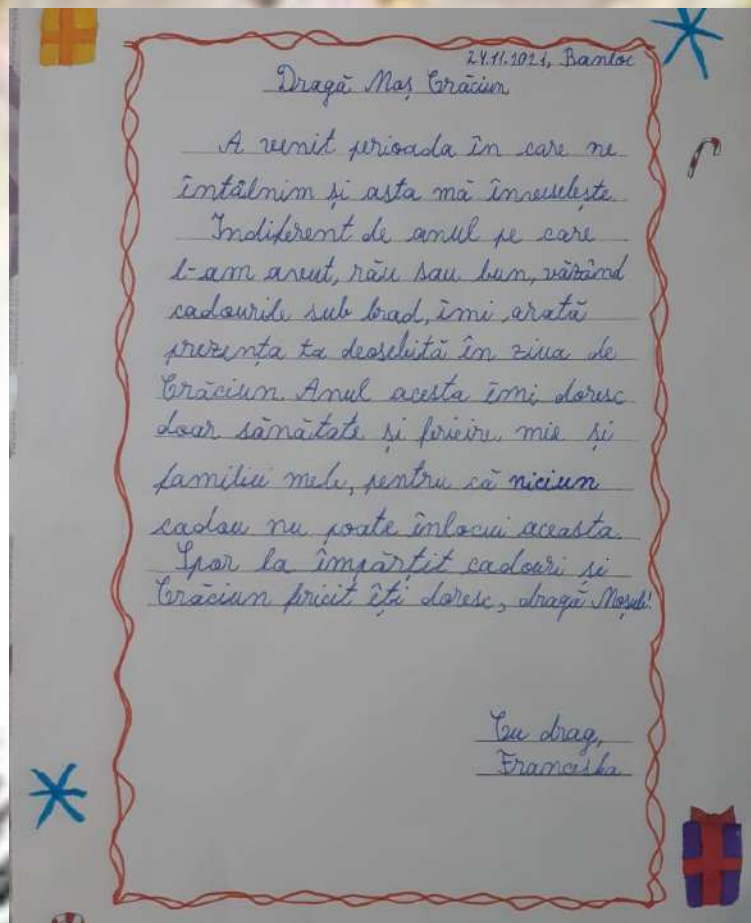 24.11.2021, Banloc
Dragă Moș Crăciun
A venit perioada în care ne
întâlnim și asta mă înveselește.
Indiferent de anul pe care
l-am avut, rău sau bun, văzând
cadourile sub brad, îmi arată
prezența ta deosebită în ziua de
Crăciun. Anul acesta îmi doresc
doar sănătate și fericire, mie și
familiei mele, pentru că niciun
cadou nu poate înlocui aceasta.
Spor la împărțit cadouri și
Crăciun fericit îți doresc, dragă Moșule!
Cu drag,
Franceska